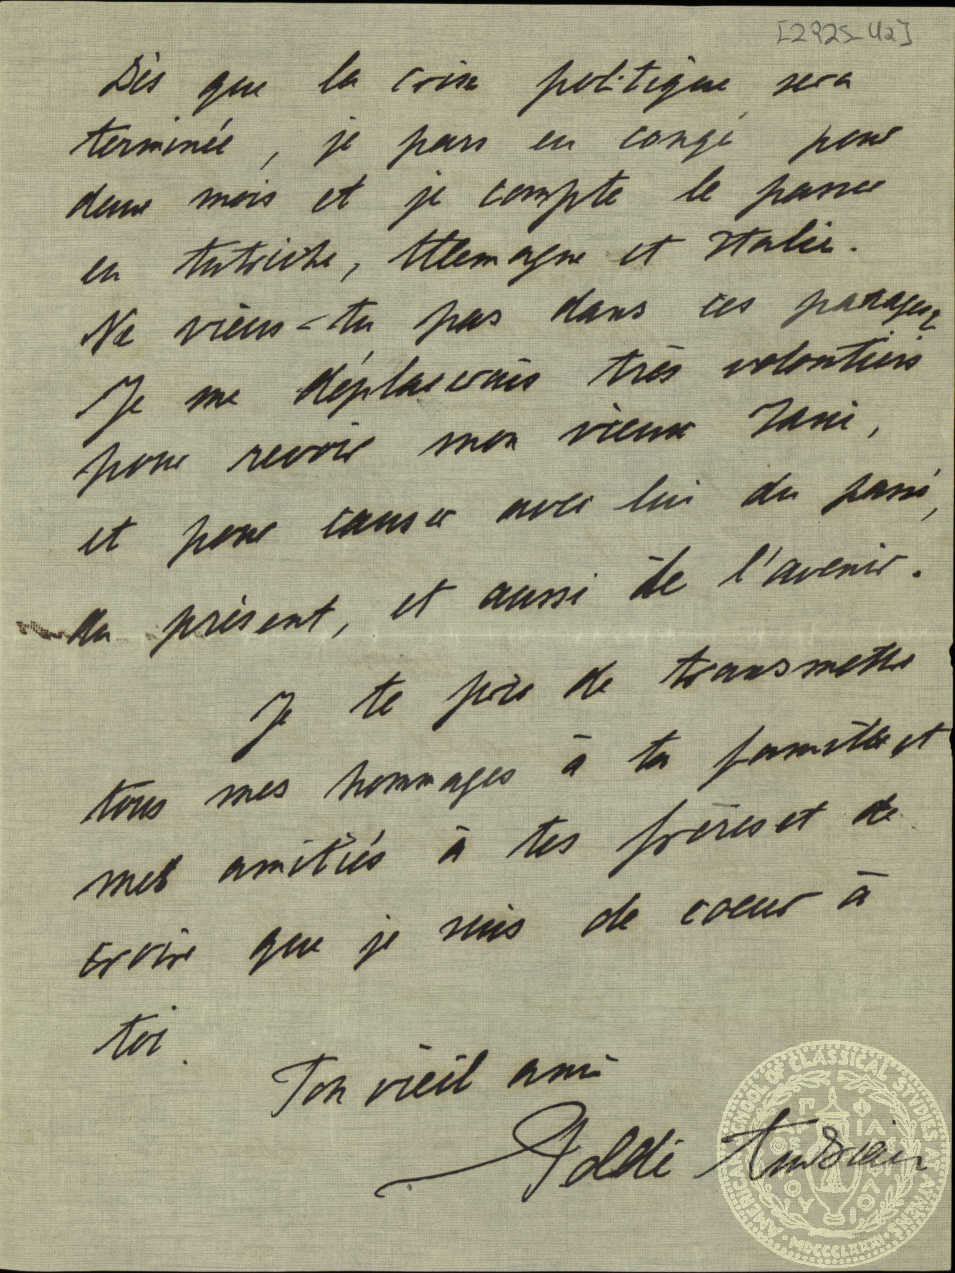 [2925-42]
Dès que la crise politique sera
terminée, je pars en congé pour
deux mois et je compte le passer
en Autriche, Allemagne et Italie.
Ne viens-tu pas dans ces parages?
Je me déplacerais très volontiers
pour revoir mon vieux Jani,
et pour causer avec lui du passé,
du présent, et aussi de l'avenir.
Je te prie de transmettre
tous mes hommages à ta famille et
mes amitiés à tes frères et de
croire que je suis de coeur à
toi.
Ton vieil ami
AMERICAN SCHOOL OF CLASSICAL STUDIES AT ATHENS
MDCCCLXXXI